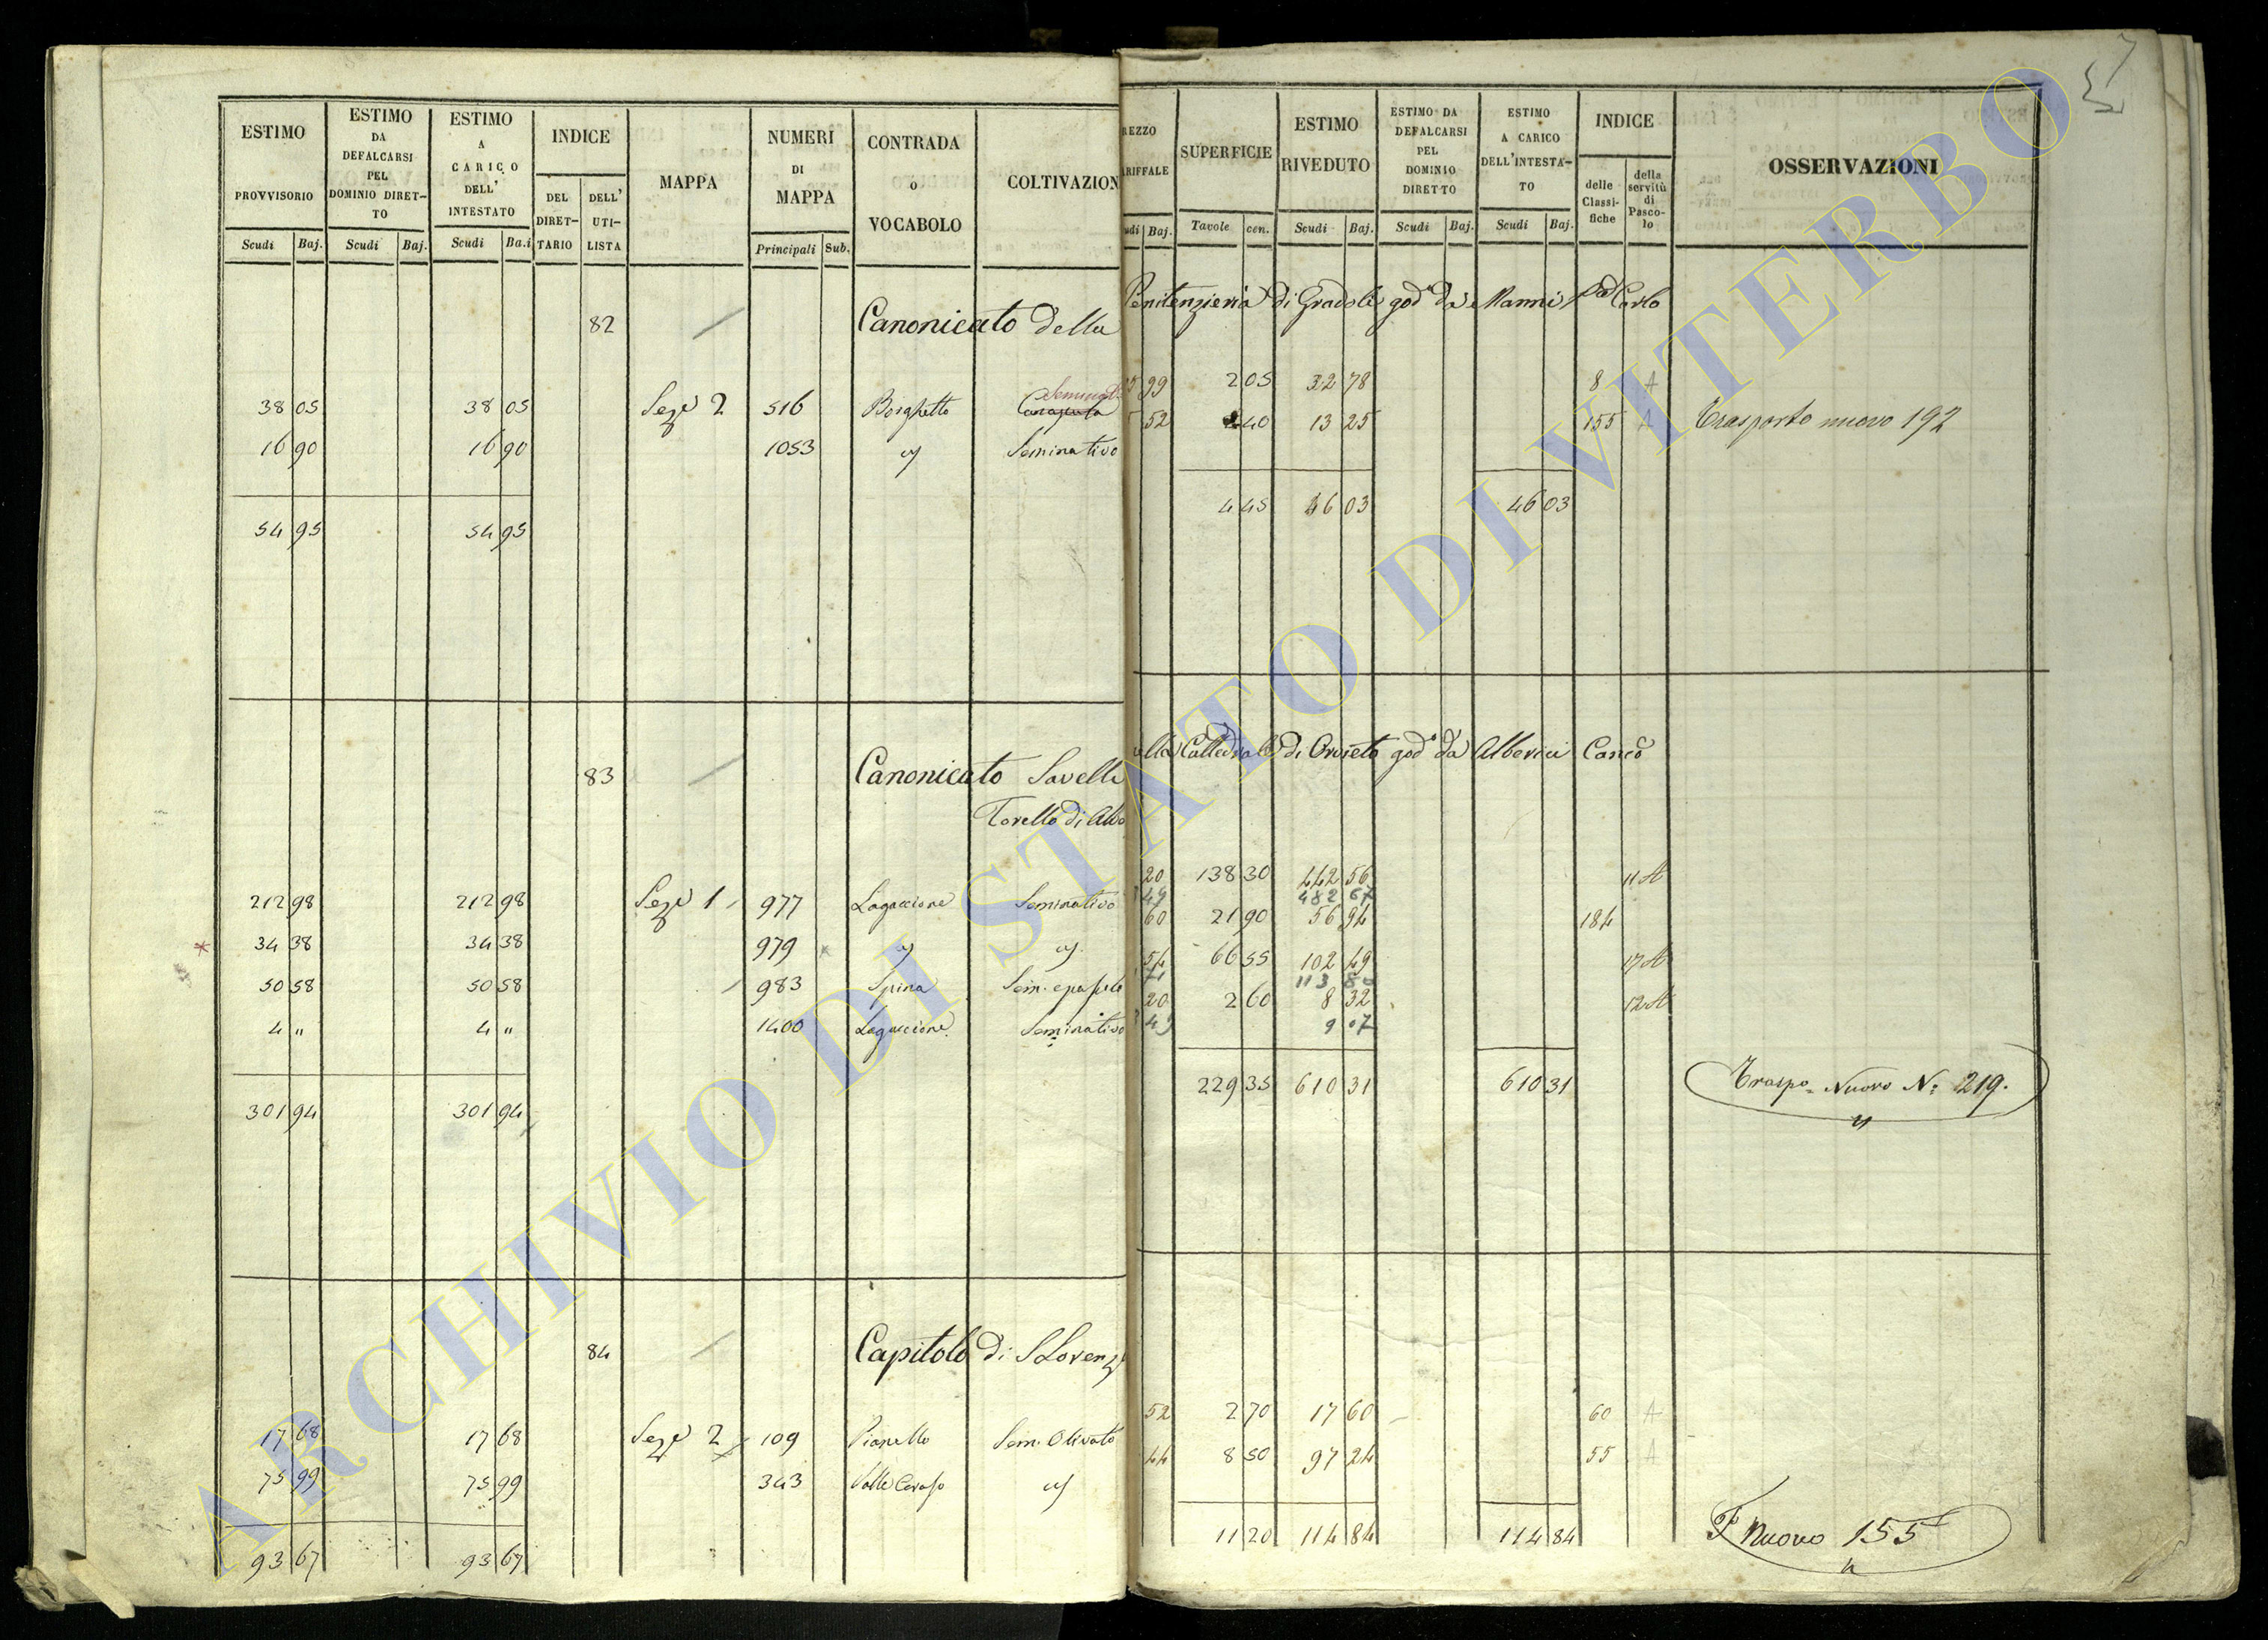 ESTIMO PROVVISORIO Scudi Baj.
ESTIMO DA DEFALCARSI PEL DOMINIO DIRET-TO Scudi Baj.
ESTIMO A CARICO DELL' INTESTATO Scudi Ba.i
INDICE
DEL DIRET-TARIO
DELL' UTI-LISTA
MAPPA
NUMERI DI MAPPA Principali Sub.
CONTRADA o VOCABOLO
COLTIVAZION
REZZO ARIFFALE udi Baj.
SUPERFICIE Tavole cen.
ESTIMO RIVEDUTO Scudi Baj.
ESTIMO DA DEFALCARSI PEL DOMINIO DIRETTO Scudi Baj.
ESTIMO A CARICO DELL'INTESTA-TO Scudi Baj.
INDICE
delle Classi-fiche
della servitù di Pasco-lo
OSSERVAZIONI
82 Canonicato della Penitenzieria di Gradoli god° da Nanni Carlo
38 05 38 05 Seze 2 516 Borghetto 99 2 05 32 78 8 A
16 90 16 90 1053 Seminativo 52 40 13 25 155 A Trasporto nuovo 192
54 95 54 95 4 45 46 03 46 03
83 Canonicato Savelli Cattedrale di Orvieto god° da Alberici
Torello di
212 98 212 98 Seze 1 977 Lagaccione Seminativo 20 138 30 442 56 11 A
49 482 67
34 38 34 38 979 60 21 90 56 94 184
50 58 50 58 983 Spina 54 66 55 102 49 17 A
71 113 80
4 " 4 " 1400 Lagaccione Seminativo 20 2 60 8 32 12 A
49 9 07
301 94 301 94 229 35 610 31 610 31 Traspo. Nuovo N: 219.
84 Capitolo di S Lorenz
17 68 17 68 Seze 2 109 Pianello Sem. Olivato 52 2 70 17 60 60 A
75 99 75 99 343 Valle Ceraso 44 8 50 97 24 55 A
93 67 93 67 11 20 114 84 114 84 Nuovo 155
ARCHIVIO DI STATO DI VITERBO